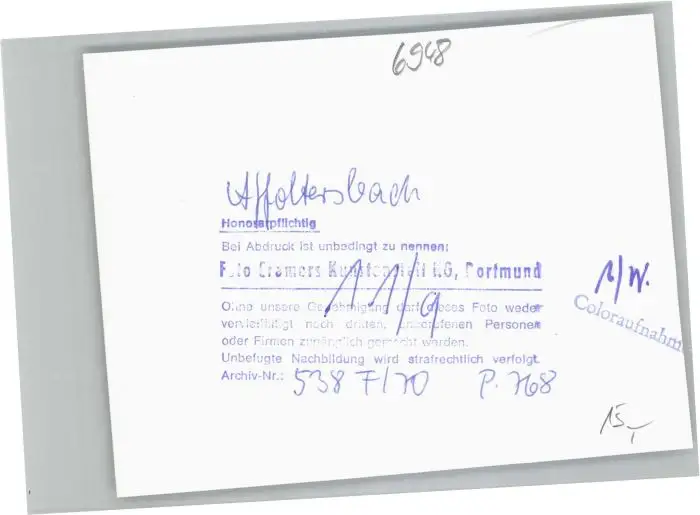 6948
Affoltersbach
Honorarpflichtig
Bei Abdruck ist unbedingt zu nennen:
Foto Cramers Kunstanstalt KG, Dortmund
11/9
Ohne unsere Genehmigung darf dieses Foto weder
vervielfältigt noch dritten, unberufenen Personen
oder Firmen zugänglich gemacht werden.
Unbefugte Nachbildung wird strafrechtlich verfolgt.
Archiv-Nr.: 538 F/70 P. 768
1/W.
Coloraufnahm
15,-